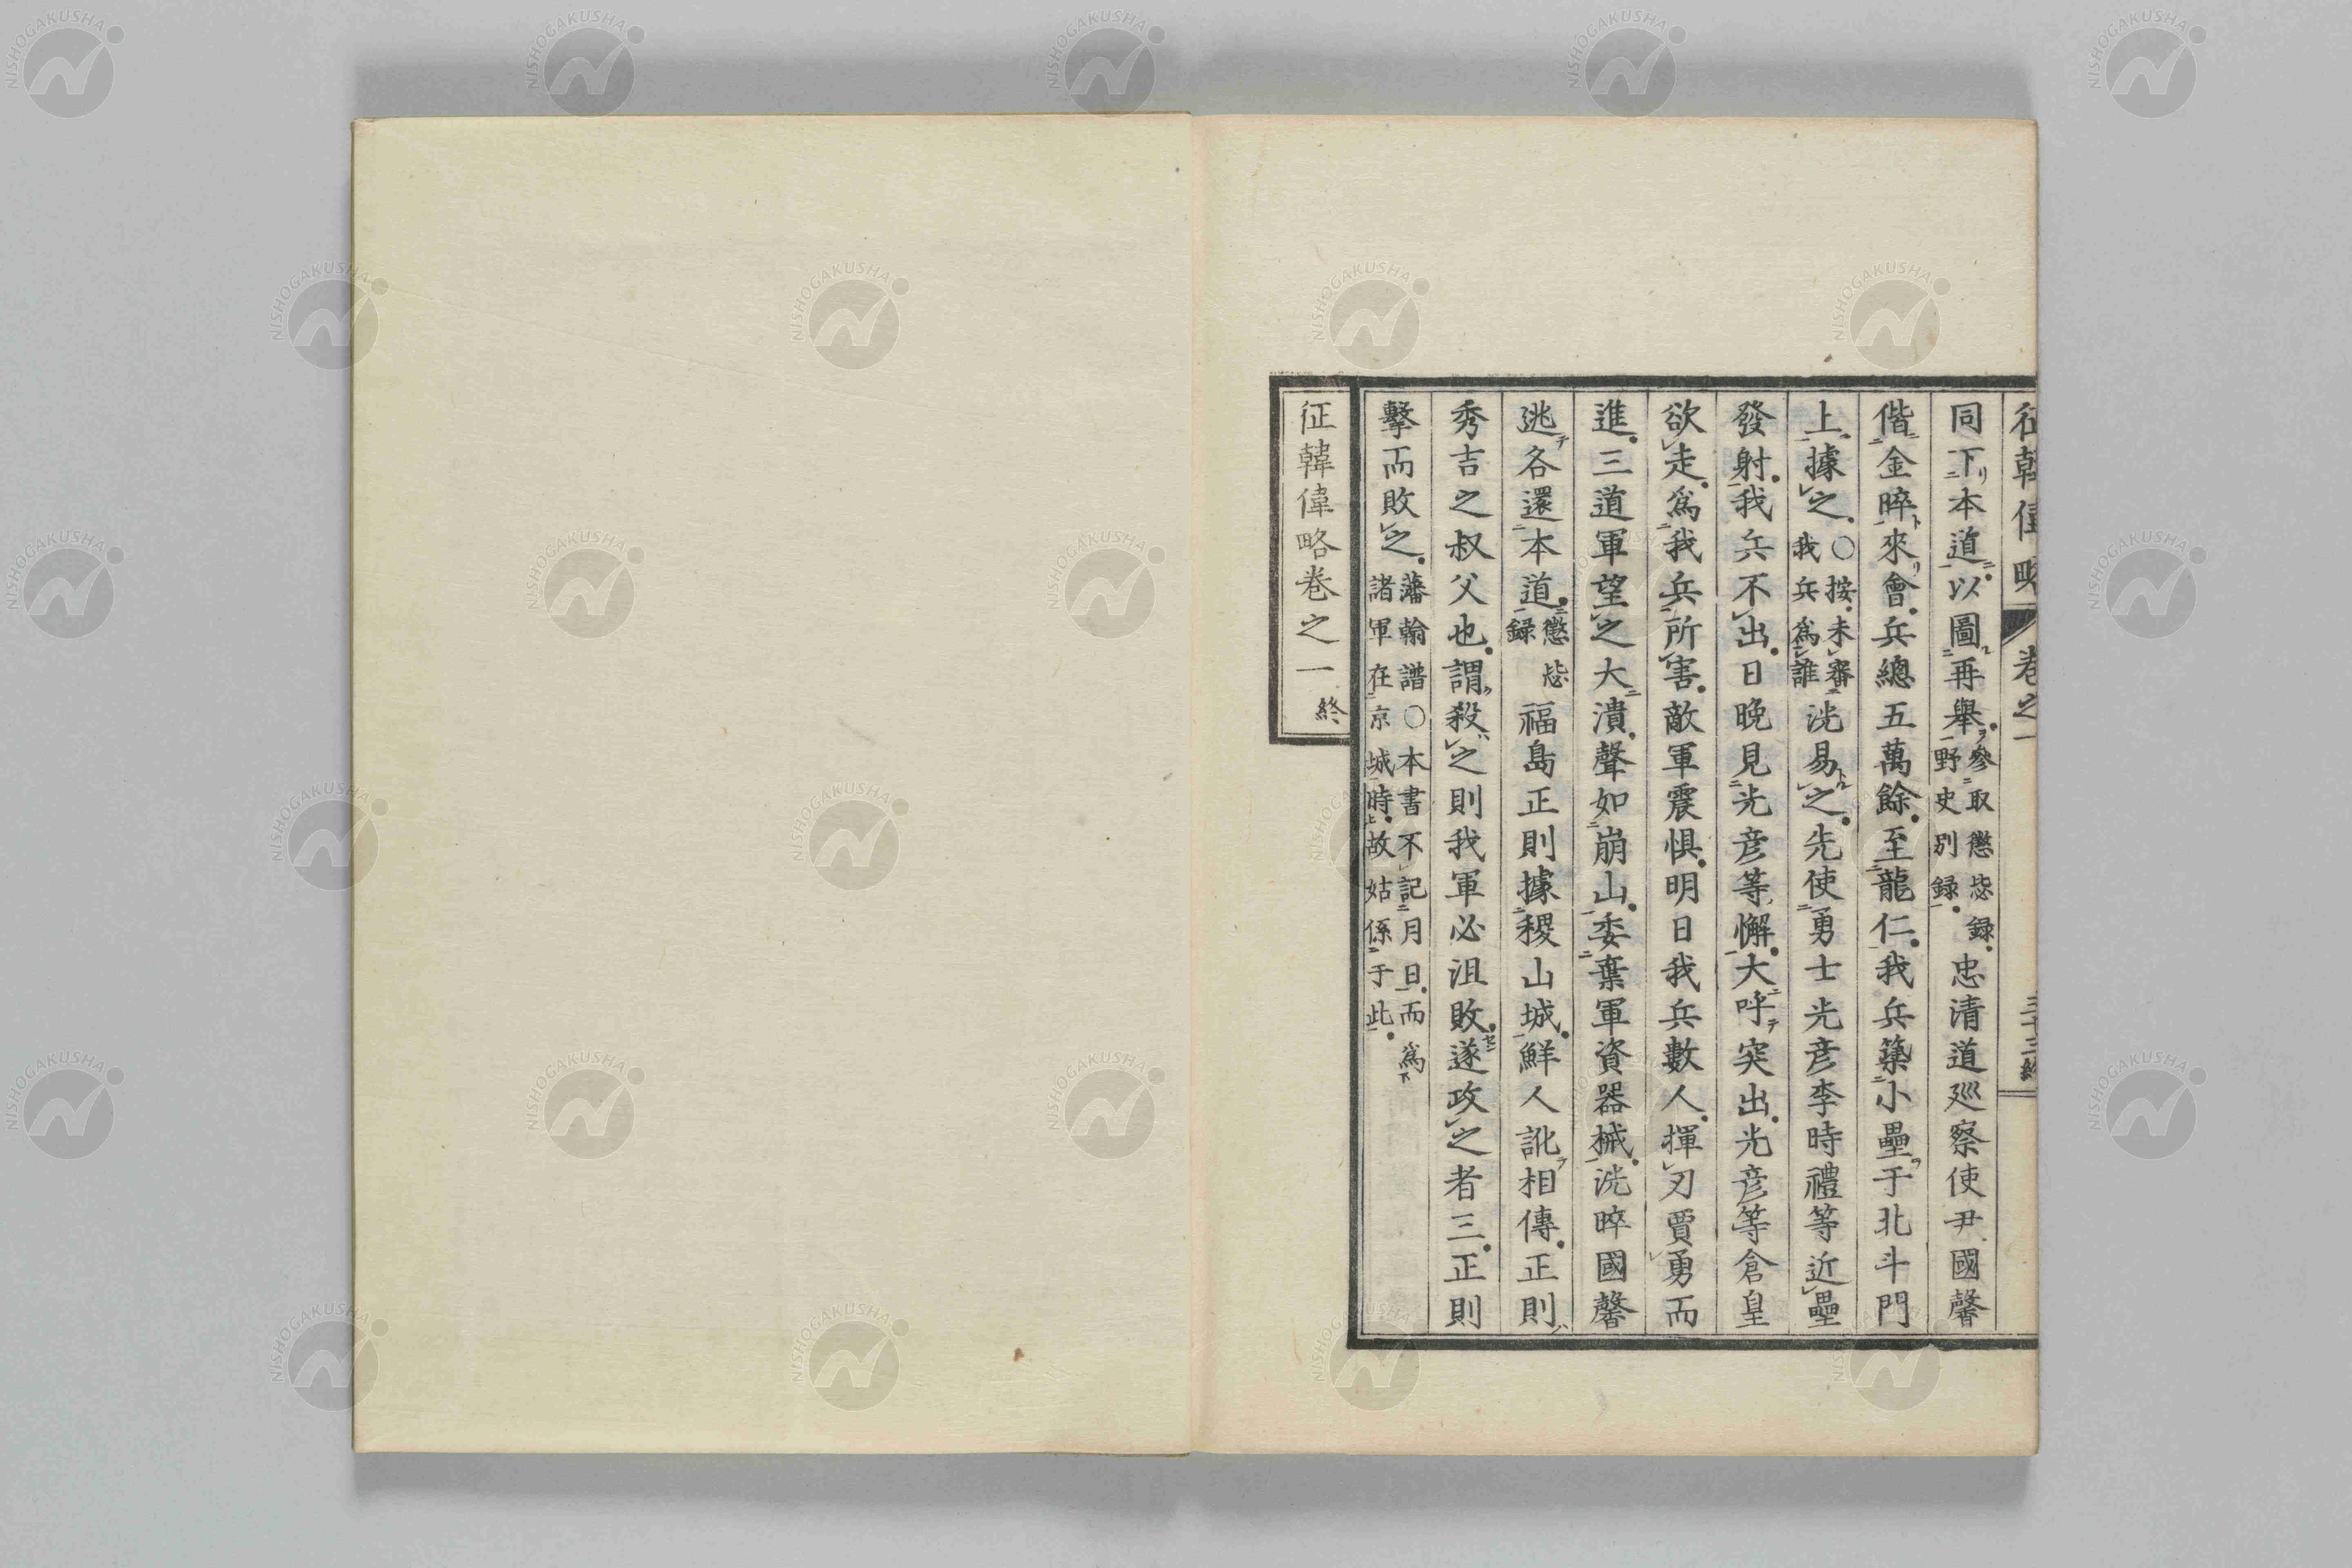 征韓偉略 卷之一 三十三終
同下本道以圖再舉參取懲毖錄野史別録忠清道巡察使尹國馨
偕金晬來會兵總五萬餘至龍仁我兵築小壘于北斗門
上據之〇按未審我兵爲誰洸易之先使勇士光彦李時禮等近壘
發射我兵不出日晚見光彦等懈大呼突出光彦等倉皇
欲走爲我兵所害敵軍震惧明日我兵數人揮刃賈勇而
進三道軍望之大潰聲如崩山委棄軍資器械洸晬國馨
逃各還本道懲毖録福島正則據稷山城鮮人訛相傳正則
秀吉之叔父也謂殺之則我軍必沮敗遂攻之者三正則
擊而敗之藩翰譜〇本書不記月日而爲諸軍在京城時故姑係于此
征韓偉略卷之一終
NISHOGAKUSHA